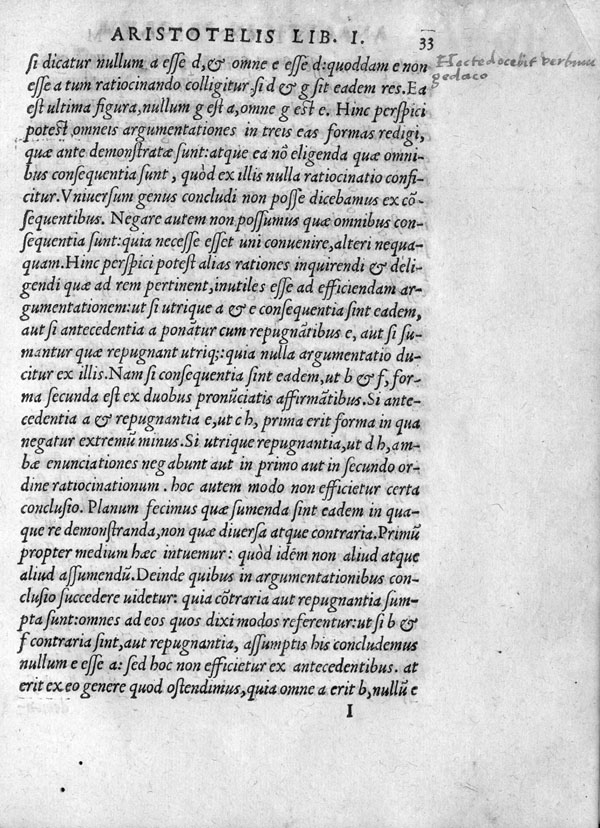 ARISTOTELIS LIB. I. 33
si dicatur nullum a esse d, & omne e esse d: quoddam e non
esse a tum ratiocinando colligitur. si d & g sit eadem res. Ea
est ultima figura, nullum g est a, omne g est e. Hinc perspici
potest, omneis argumentationes in treis eas formas redigi,
quæ ante demonstratæ sunt: atque ea nō eligenda quæ omni-
bus consequentia sunt, quòd ex illis nulla ratiocinatio confi-
citur. Vniuersum genus concludi non posse dicebamus ex cō-
sequentibus. Negare autem non possumus quæ omnibus con-
sequentia sunt: quia necesse esset uni conuenire, alteri nequa-
quam. Hinc perspici potest alias rationes inquirendi & deli-
gendi quæ ad rem pertinent, inutiles esse ad efficiendam ar-
gumentationem: ut si utrique a & e consequentia sint eadem,
aut si antecedentia a ponātur cum repugnātibus e, aut si su-
mantur quæ repugnant utriq;: quia nulla argumentatio du-
citur ex illis. Nam si consequentia sint eadem, ut b & f, for-
ma secunda est ex duobus pronūciatis affirmātibus. Si ante-
cedentia a & repugnantia e, ut c h, prima erit forma in qua
negatur extremū minus. Si utrique repugnantia, ut d h, am-
bæ enunciationes negabunt aut in primo aut in secundo or-
dine ratiocinationum. hoc autem modo non efficietur certa
conclusio. Planum fecimus quæ sumenda sint eadem in qua-
que re demonstranda, non quæ diuersa atque contraria. Primū
propter medium hæc intuemur: quòd idem non aliud atque
aliud assumendū. Deinde quibus in argumentationibus con-
clusio succedere uidetur: quia cōtraria aut repugnantia sum-
pta sunt: omnes ad eos quos diximodos referentur: ut si b &
f contraria sint, aut repugnantia, assumptis his concludemus
nullum e esse a: sed hoc non efficietur ex antecedentibus. at
erit ex eo genere quod ostendimius, quia omne a erit b, nullū e
I